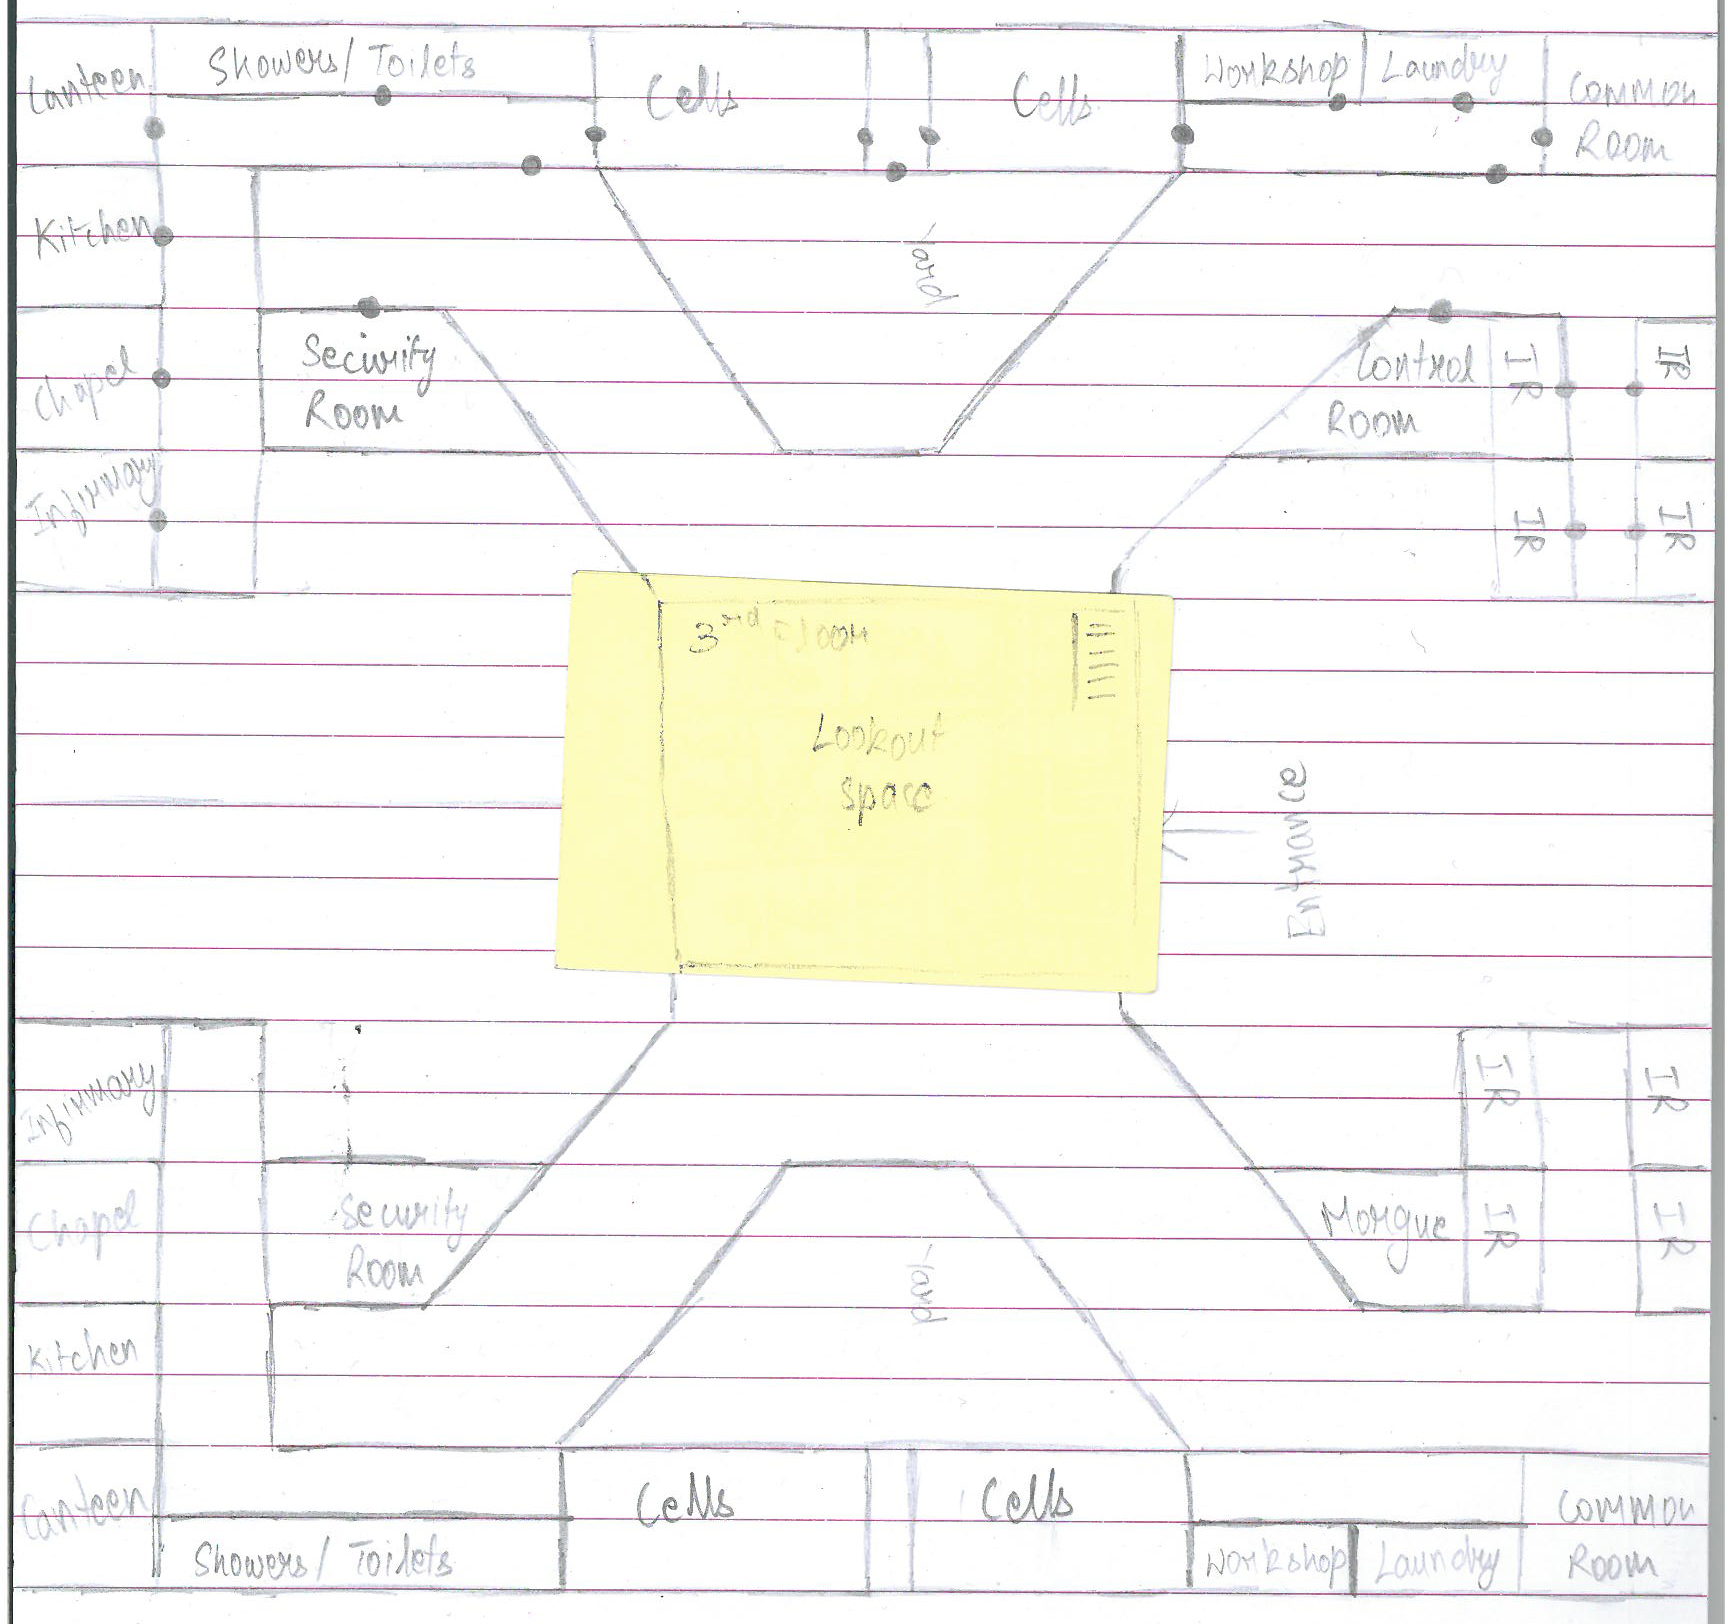 Canteen
Showers/ Toilets
Cells
Cells
Workshop
Laundry
Common
Room
Kitchen
Yard
Chapel
Security
Room
Control
Room
IR
IR
Infirmary
IR
IR
3rd Floor
Lookout
space
Entrance
Infirmary
IR
IR
Chapel
Security
Room
Yard
Morgue
IR
IR
Kitchen
Canteen
Showers/ Toilets
Cells
Cells
Workshop
Laundry
Common
Room